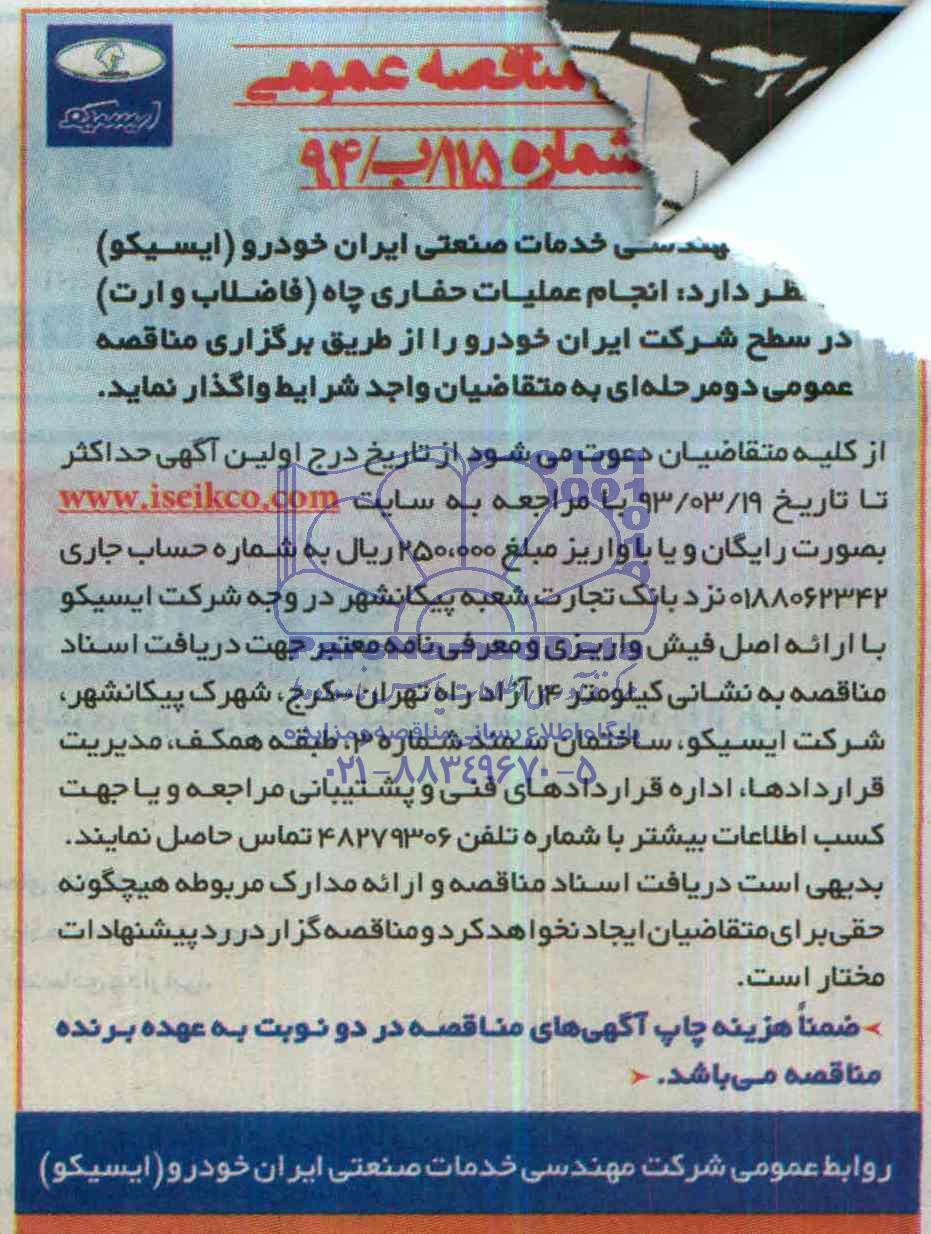 ایسیکو
مناقصه عمومی
شماره ۱۱۵/ب/۹۴
مهندسی خدمات صنعتی ایران خودرو (ایسیکو)
نظر دارد: انجام عملیات حفاری چاه (فاضلاب و ارت)
در سطح شرکت ایران خودرو را از طریق برگزاری مناقصه
عمومی دومرحله‌ای به متقاضیان واجد شرایط واگذار نماید.
از کلیه متقاضیان دعوت می شود از تاریخ درج اولین آگهی حداکثر
تا تاریخ ۹۳/۰۳/۱۹ با مراجعه به سایت www.iseikco.com
بصورت رایگان و یا با واریز مبلغ ۲۵۰،۰۰۰ ریال به شماره حساب جاری
۰۱۸۸۰۶۲۳۴۲ نزد بانک تجارت شعبه پیکانشهر در وجه شرکت ایسیکو
با ارائه اصل فیش واریزی و معرفی نامه معتبر جهت دریافت اسناد
مناقصه به نشانی کیلومتر ۱۴ آزاد راه تهران-کرج، شهرک پیکانشهر،
شرکت ایسیکو، ساختمان سمند شماره ۲، طبقه همکف، مدیریت
قراردادها، اداره قراردادهای فنی و پشتیبانی مراجعه و یا جهت
کسب اطلاعات بیشتر با شماره تلفن ۴۸۲۷۹۳۰۶ تماس حاصل نمایند.
بدیهی است دریافت اسناد مناقصه و ارائه مدارک مربوطه هیچگونه
حقی برای متقاضیان ایجاد نخواهد کرد و مناقصه گزار در رد پیشنهادات
مختار است.
ضمناً هزینه چاپ آگهی‌های مناقصه در دو نوبت به عهده برنده
مناقصه می‌باشد.
روابط عمومی شرکت مهندسی خدمات صنعتی ایران خودرو (ایسیکو)
پایگاه اطلاع رسانی مناقصه و مزایده
۰۲۱-۸۸۳۴۹۶۷۰-۵